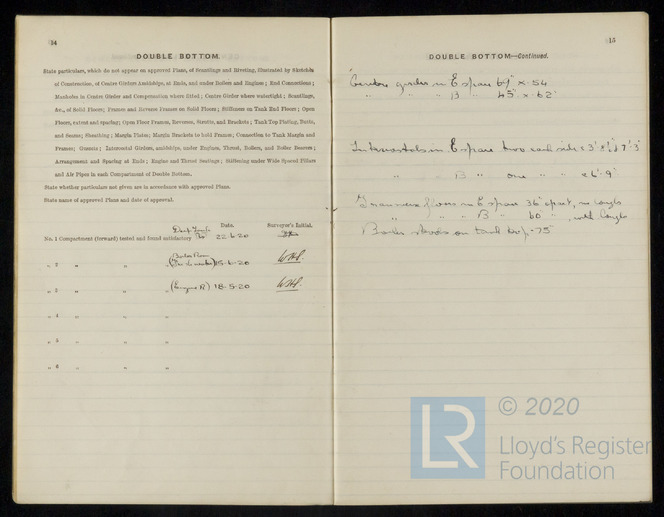 14
DOUBLE BOTTOM.
State particulars, which do not appear on approved Plans, of Scantlings and Riveting, illustrated by Sketches
of End Construction, of Centre Girders Amidships, at Ends, and under Boilers and Engines; End Connections;
Manholes in Centre Girder and Compensation where fitted; Centre Girder where watertight; Scantlings,
&c., of Solid Floors; Frames and Reverse Frames on Solid Floors; Stiffeners on Tank End Floors; Open
Floors, extent and spacing; Open Floor Frames, Reverses, Struts, and Brackets; Tank Top Plating, Butts,
and Seams; Sheathing; Margin Plates; Margin Brackets to hold Frames; Connection to Tank Margin and
Frames; Gussets; Intercostal Girders, amidships, under Engines, Thrust, Boilers, and Boiler Bearers;
Arrangement and Spacing at Ends; Engine and Thrust Seatings; Stiffening under Wide Spaced Pillars
and Air Pipes in each Compartment of Double Bottom.
State whether particulars not given are in accordance with approved Plans.
State name of approved Plans and date of approval.
Date. Surveyor's Initial.
No. 1 Compartment (forward) tested and found satisfactory 22-6-20
„ 2 „ „ „ (Boiler Room 15-6-20 WHP.
„ 3 „ „ „ (Engine R) 18-5-20 WHP.
„ 4 „ „ „
„ 5 „ „ „
„ 6 „ „ „
15
DOUBLE BOTTOM—Continued.
Centre girder in E space 69" x .54
„ „ „ B „ 45" x .62
Intercostals in E space two each side
„ „ B „ one „ „ 6'-9"
Transverse floors in E space 36" apart,
„ „ „ B „ 60 „ , with
Boiler stools on tank top -75"
© 2020
LR
Lloyd's Register
Foundation